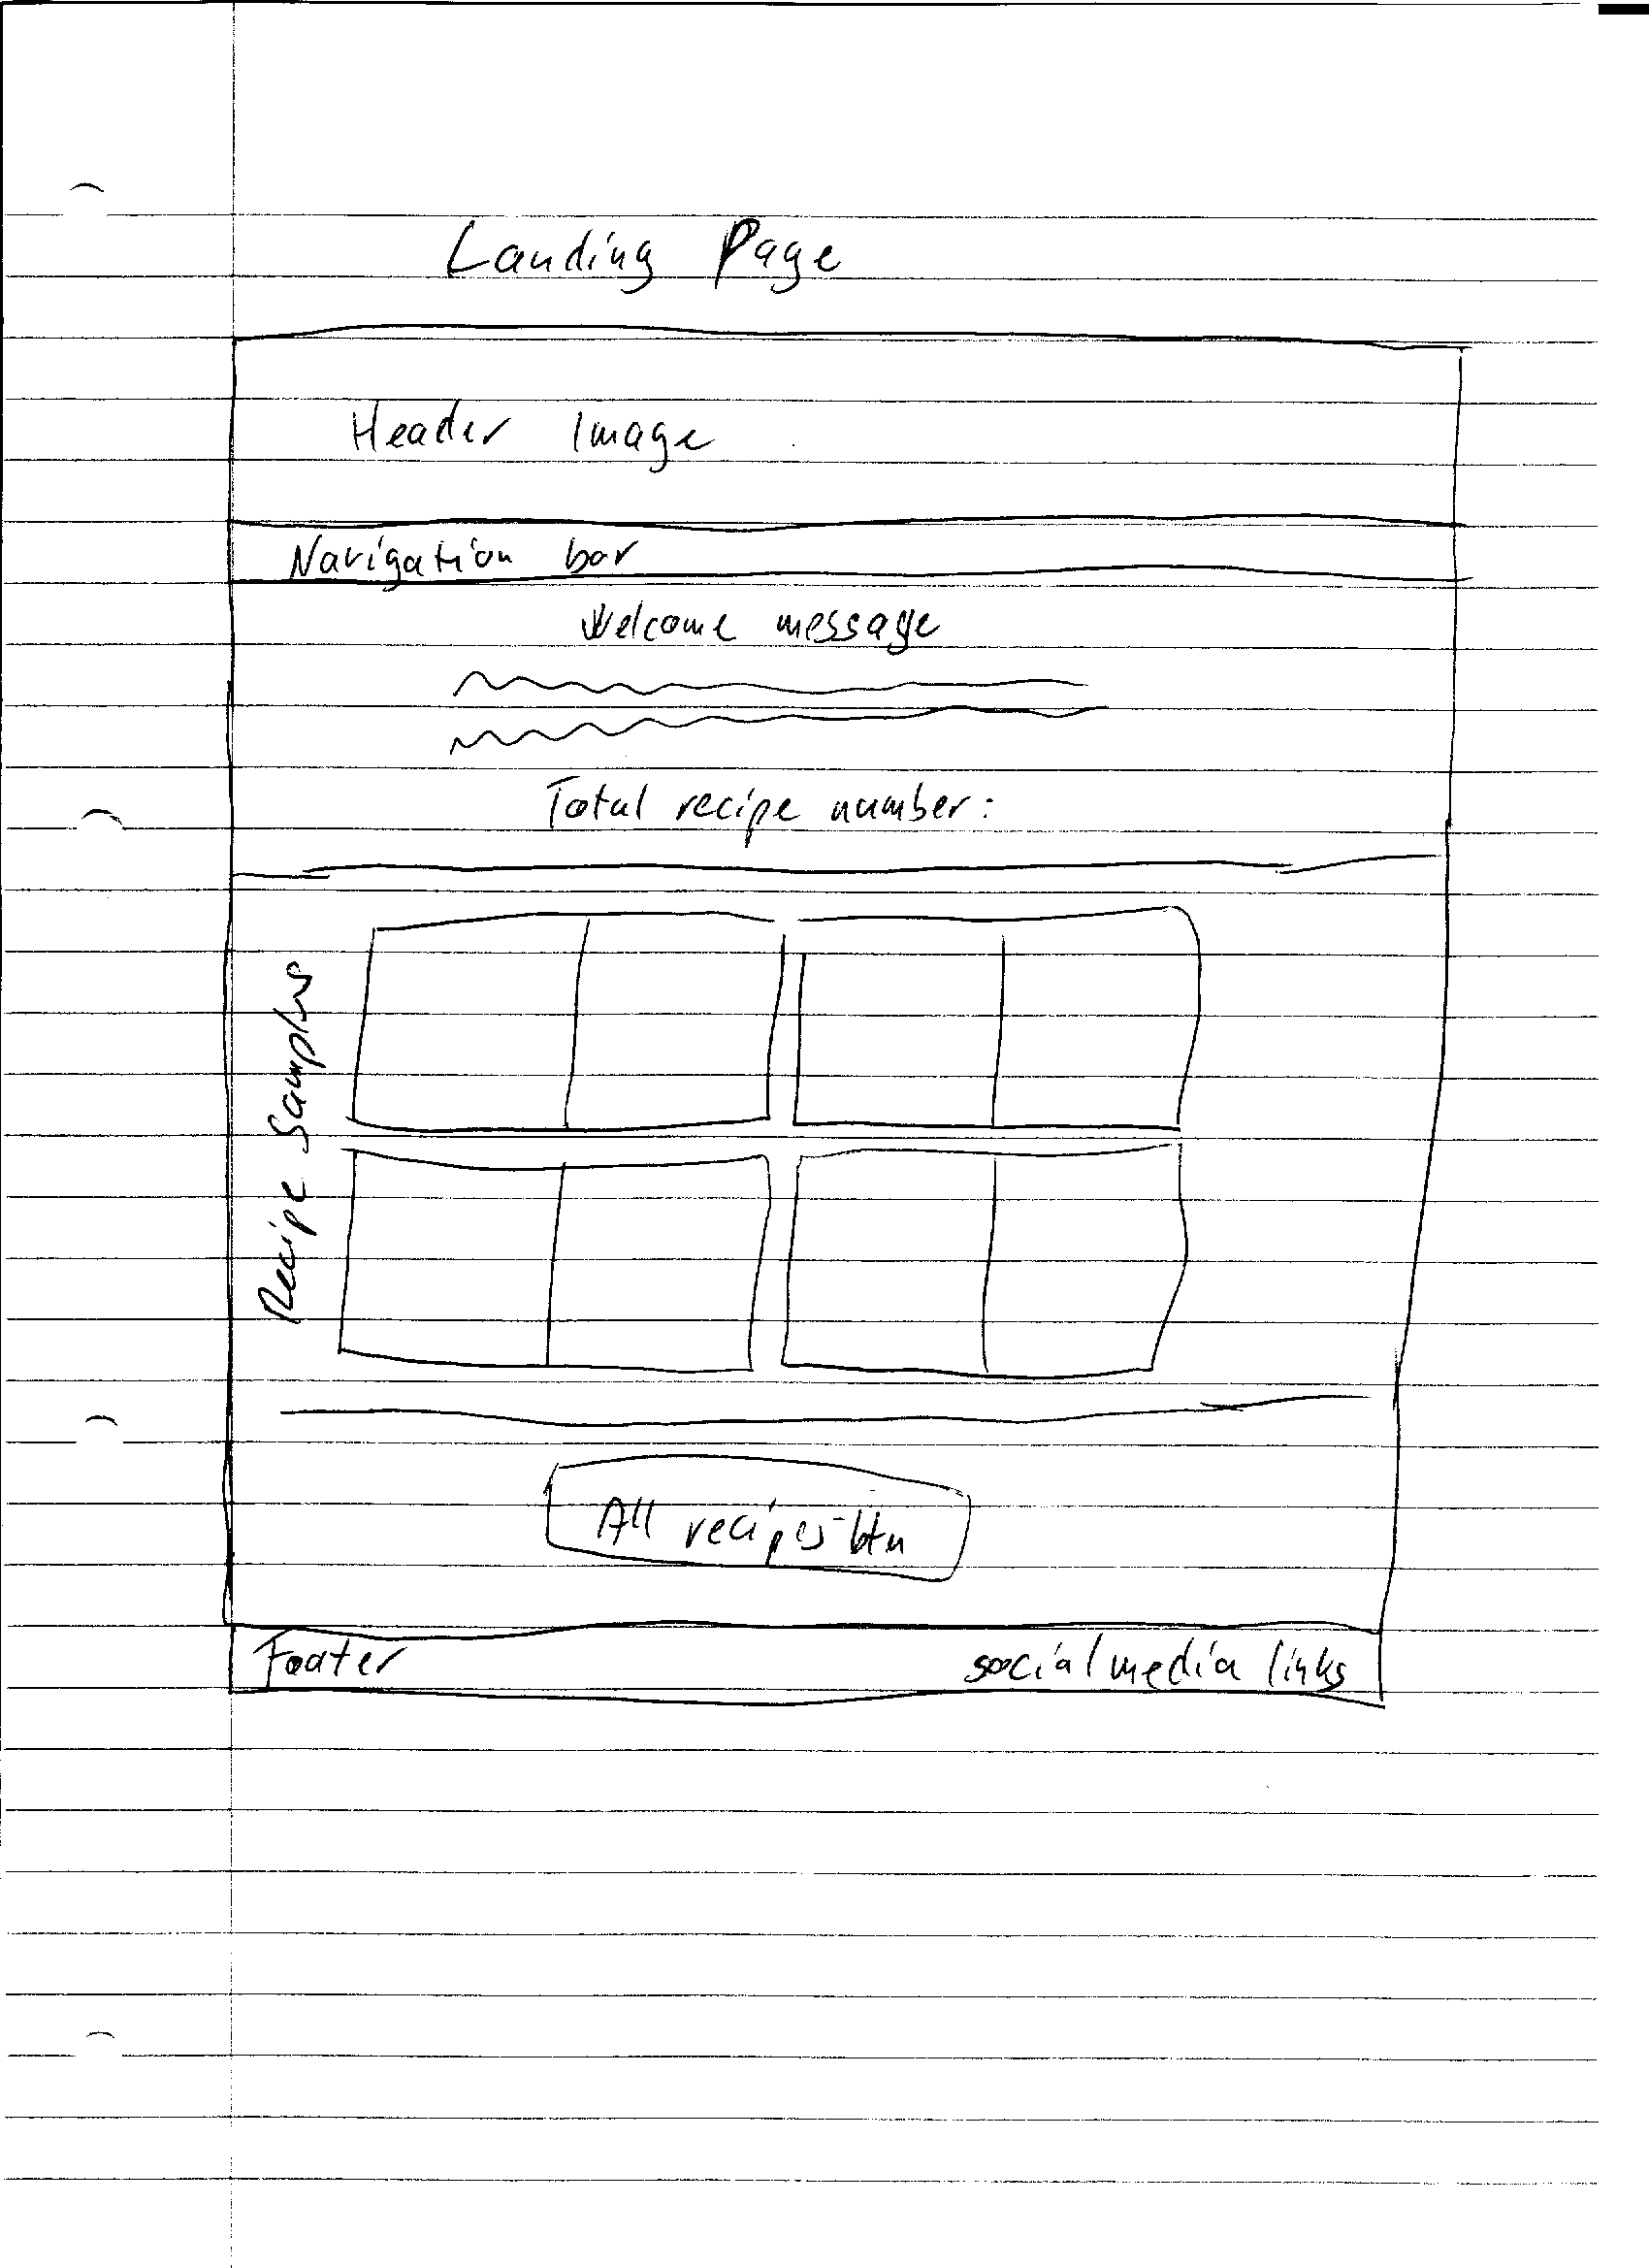 Landing Page
Header Image
Navigation bar
Welcome message
Total recipe number:
Recipe Samples
All recipes-btn
Footer
social media links